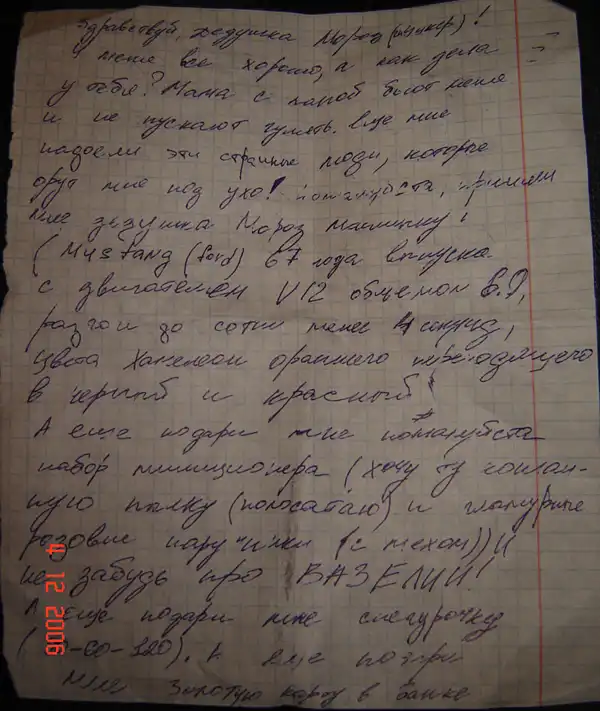 Здравствуй, дедушка Мороз (юнкер)!
У меня все хорошо, а как дела
у тебя? Мама с папой бьют меня
и не пускают гулять. Еще мне
надоели эти странные люди, которые
орут мне под ухо! Пожалуйста, пришли
мне дедушка Мороз машинку!
(Mustang (ford) 67 года выпуска
с двигателем V12 общемом 6.9,
разгон до сотни менее 4 секунд,
цвета хамелеон оранжего переходящего
в черный и красный!
А еще подари мне пожалуйста
набор милиционера (хочу ту
палку (полосатаю) и гламурные
розовые наручники (с мехом)) и
не забудь про ВАЗЕЛИН!
А еще подари мне снегурочку
А еще подари
мне золотую карту в банке
4 12 2006